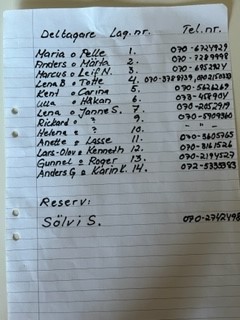 Deltagare Lag.nr. Tel.nr.
Maria o Pelle 1. 070-6721929
Anders o Märta 2. 070-7289998
Marcus o Leif N. 3.
Lena B o Totte 4.
Kent o Carina 5. 070-5626269
Ulla o Håkan 6. 073-458904
Lena o Janne S. 7. 070-2052919
Rickard o ? 9. 070-5909360
Helene o ? 10. -"-
Anette o Lasse 11. 070-3605765
Lars-Olov o Kenneth 12. 070-3161526
Gunnel o Roger 13. 070-2194527
Anders G o Karin K. 14. 072-5335383
Reserv:
Sölvi S. 070-2742498